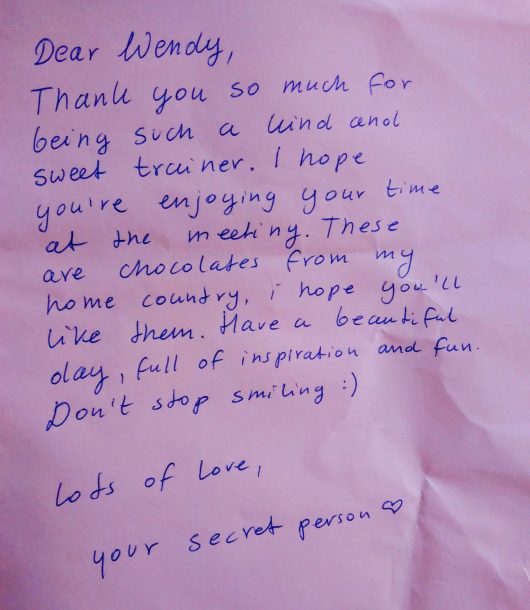 Dear Wendy,
Thank you so much for
being such a kind and
sweet trainer. I hope
you're enjoying your time
at the meeting. These
are chocolates from my
home country, i hope you'll
like them. Have a beautiful
day, full of inspiration and fun.
Don't stop smiling :)
Lots of love,
your secret person ♡